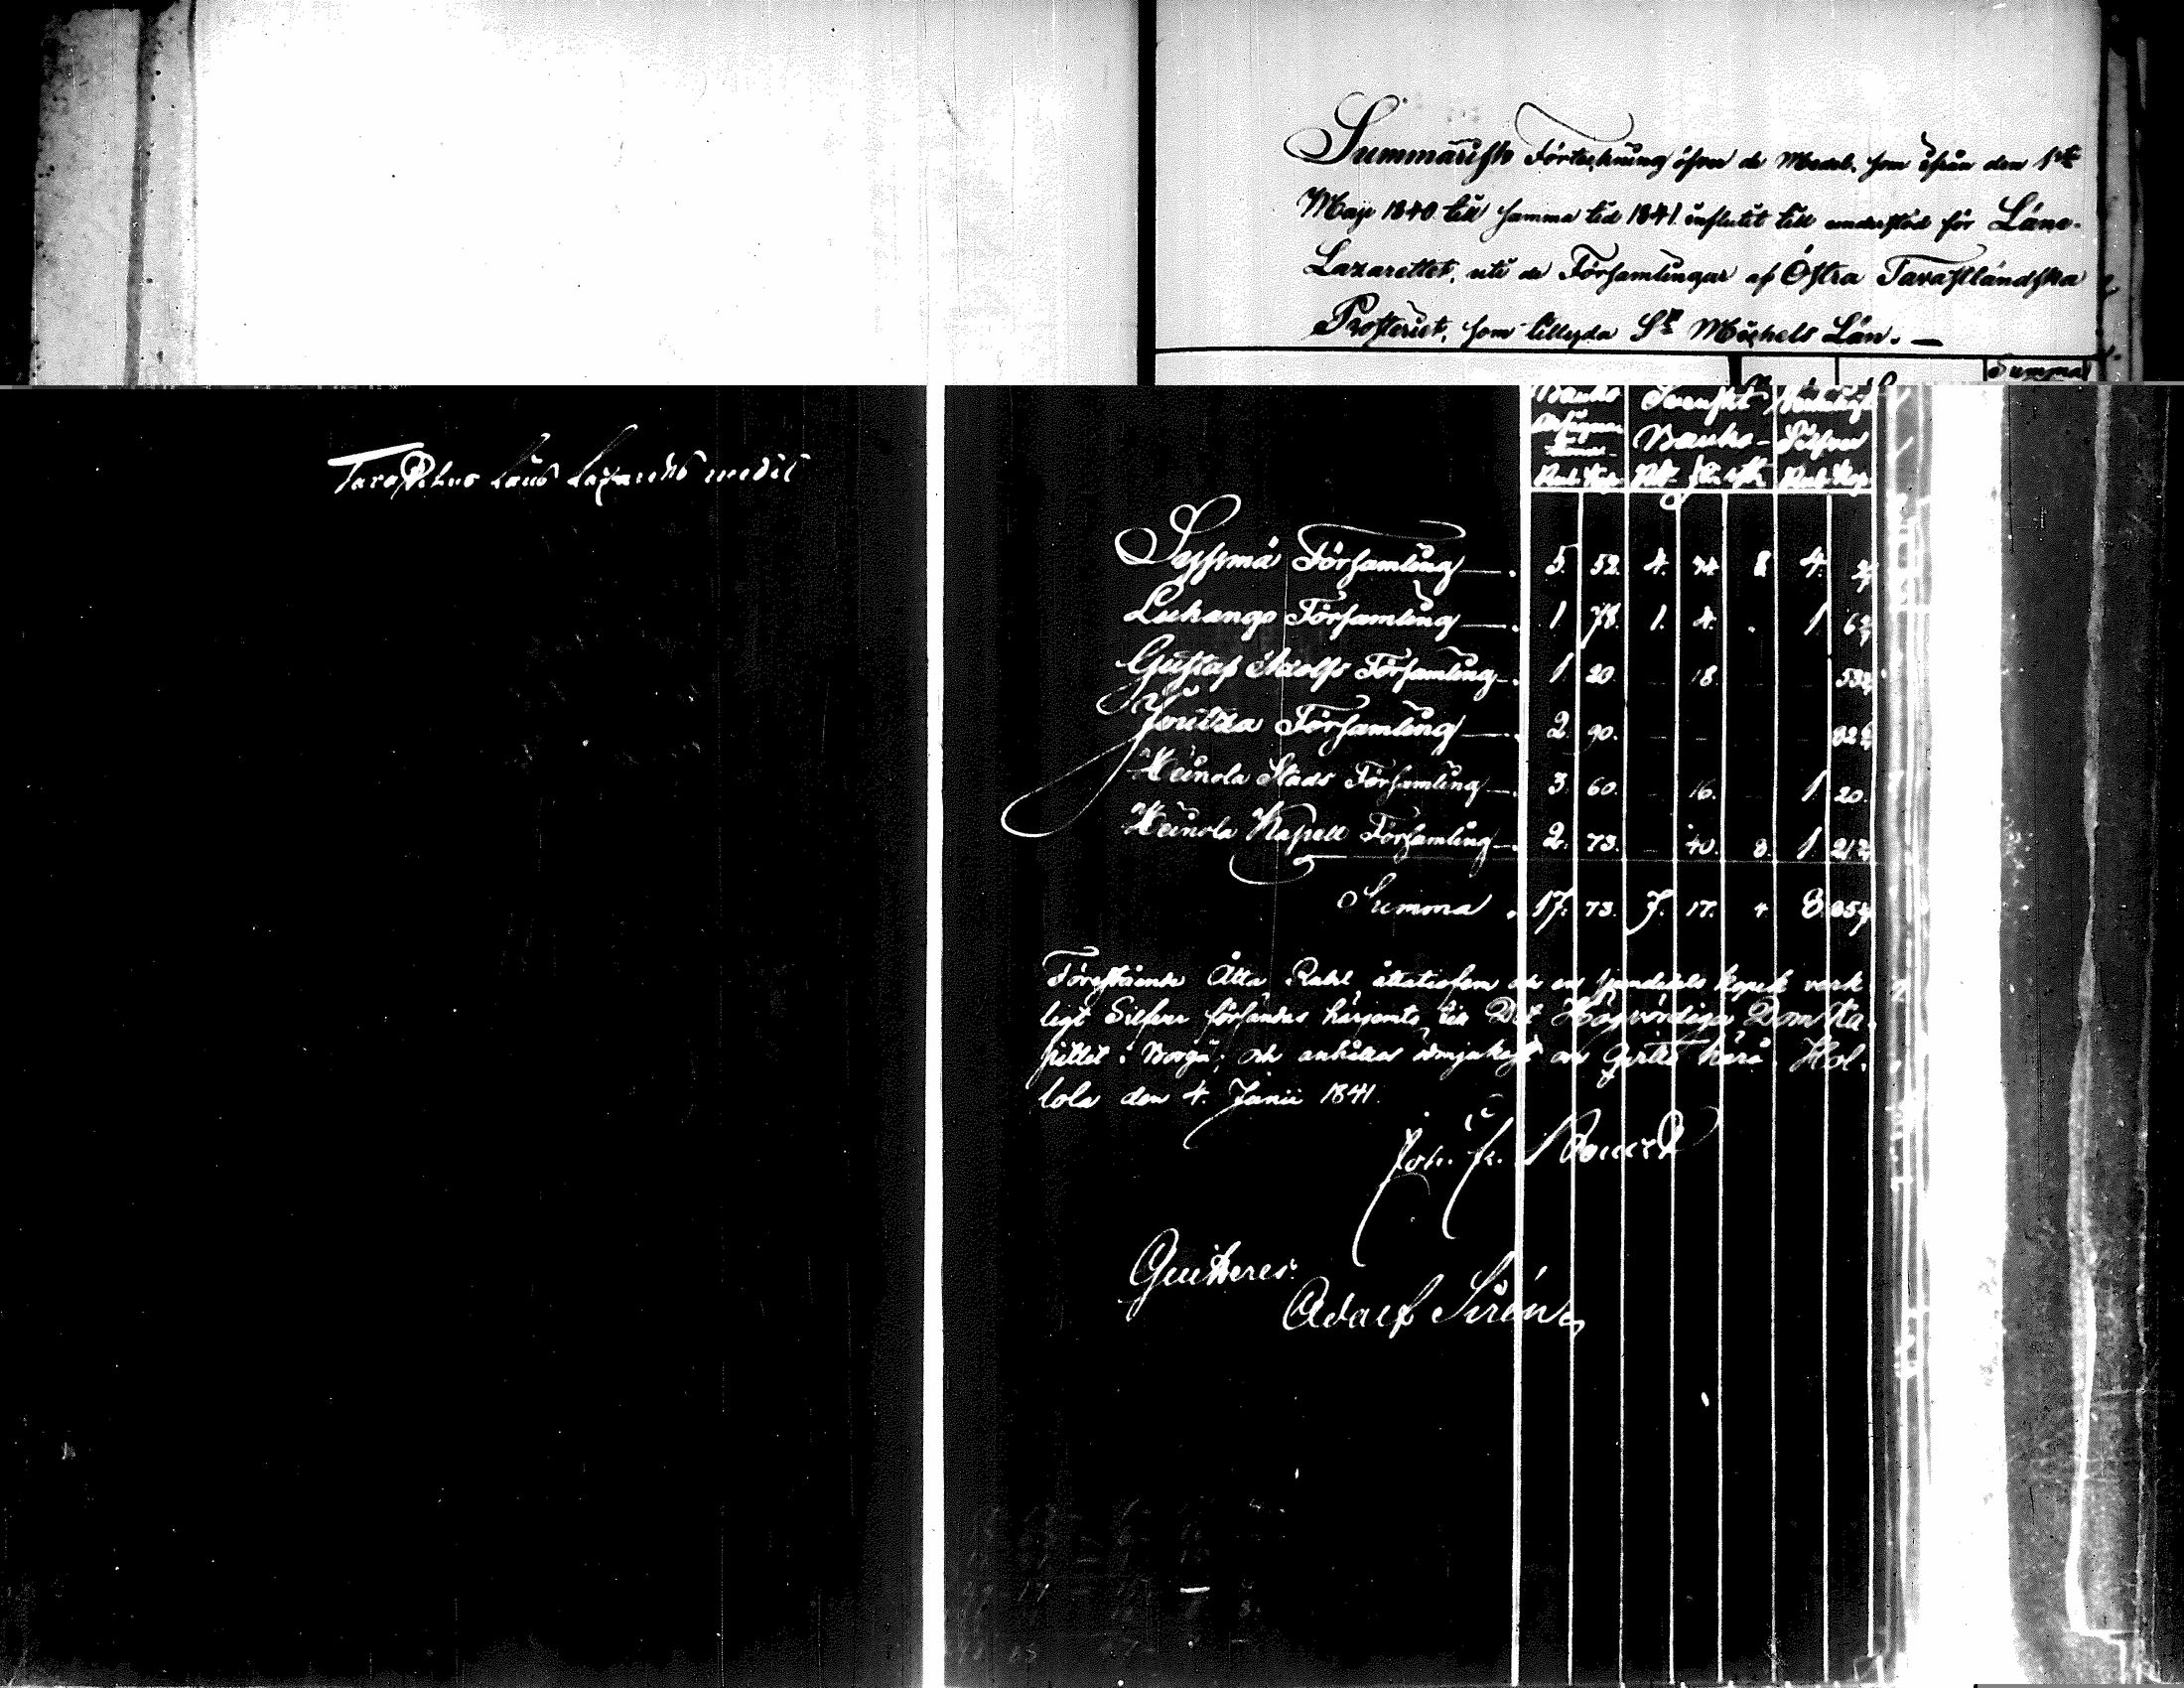 Summarisk Förteckning öfver de Medel, som ifrån den 1sta
Maji 1840 till samma tid 1841 influtit till understöd för Läne-
Lazarettet, uti de Församlingar af Östra Tavastländska
Prosteriet, som tillhöra St Michels Län. —
Summa
Tavastehus Läns Lazaretts medel
Banko Svenskt Verkeligt
Assigna- Banko- Silfver
tioner
Rub. Kop. Rdr. sk. rst. Rub. Kop.
Sysmä Församling — . 5. 52. 4. 34. 8 4.
Luhango Församling — . 1 78. 1. 4. . 1
Gustaf Adolfs Församling — . 1 20. — 18.
Joutsa Församling — . 2 90. — —
Heinola Stads Församling — . 3. 60. — 16. — 1. 20.
Heinola Kapell Församling — . 2. 73. — 40. 8. 1.
Summa . 17. 73. 7. 17. 4 8.
Förestående Åtta Rubel åttatiofem och en sjundedels kopek verk-
ligt Silfver försändas härjemte till Det Högvördiga Domka-
pitlet i Borgå; och anhålles ödmjukast om qvitto härå. Hol-
lola den 4. Junii 1841.
Joh. Fr.
Quitteres.
Adolf Sirén